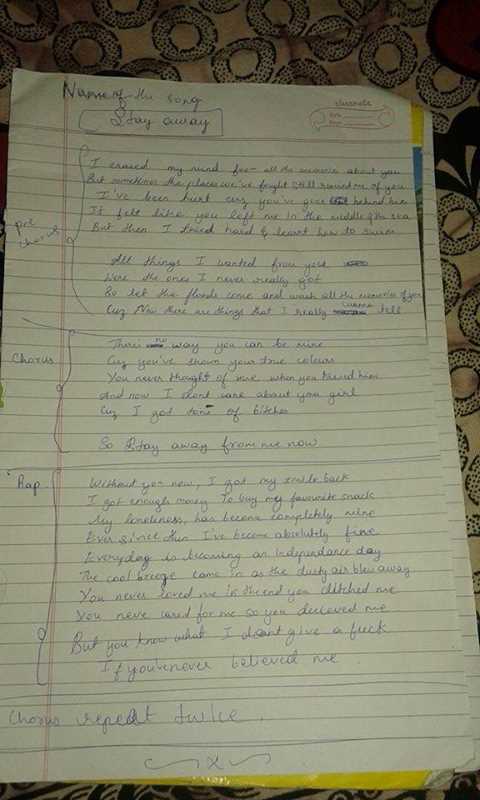 Name of the song
classmate
Stay away
I erased my mind for all the memories about you
But sometimes the places we've fought still remind me of you
I've been hurt cuz you've gone behind me
It felt like you left me in the middle of the sea
But then I tried hard & learnt how to swim
pre chorus
All things I wanted from you
Were the ones I never really got
So let the floods come and wash all the memories of you
Cuz Now there are things that I really wanna tell
Chorus
There's no way you can be mine
Cuz you've shown your true colours
You never thought of me when you kissed him
And now I dont care about you girl
Cuz I got tons of bitches
So Stay away from me now
Rap
Without you now, I got my smile back
I got enough money To buy my favourite snack
My loneliness, has become completely mine
Ever since then I've become absolutely fine
Everyday is becoming an independance day
The cool breeze came in as the dusty air blew away
You never loved me in the end you ditched me
You neve cared for me so you deceived me
But you know what I dont give a fuck
If you've never believed me
Chorus repeat twice
x